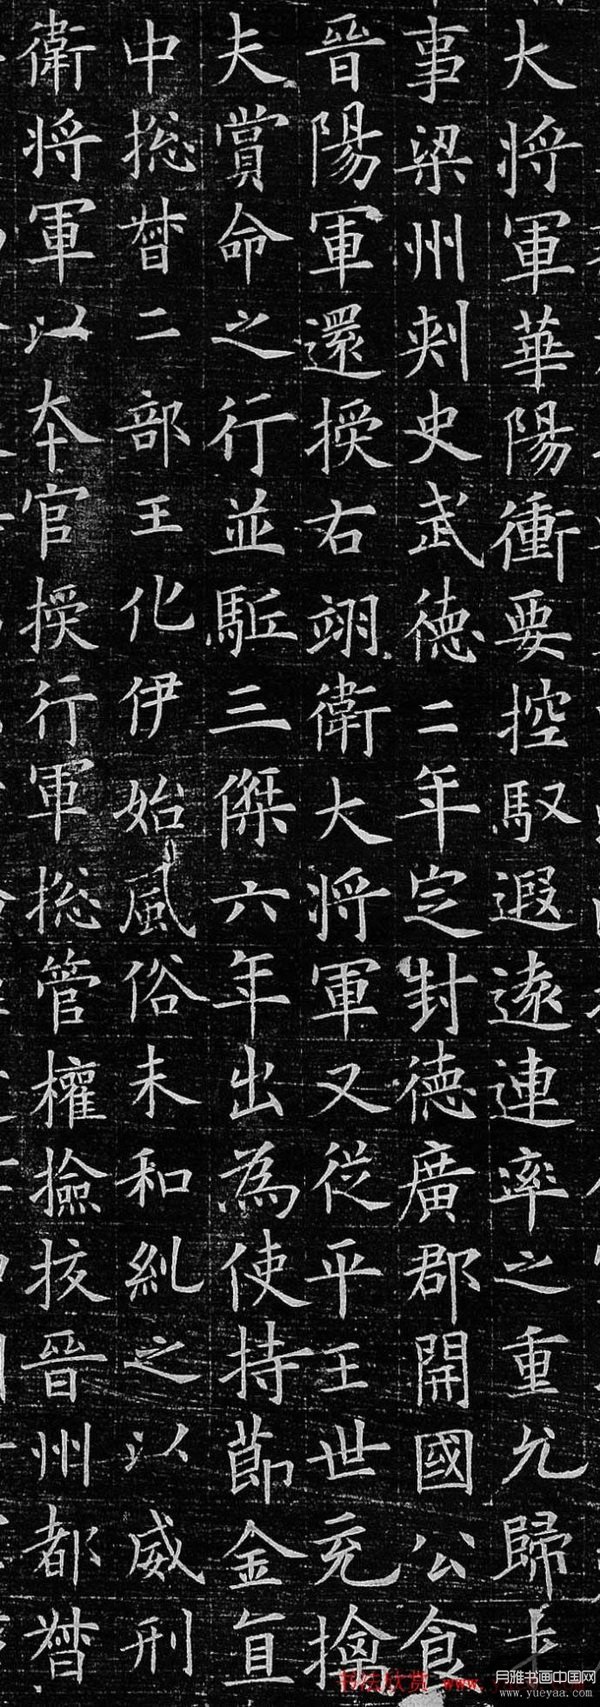 大將軍華陽衝要控馭遐遠連率之重允歸
事梁州刺史武德二年定封德廣郡開國公食
晉陽軍還授右翊衛大將軍又從平王世充擒
夫賞命之行並駈三傑六年出為使持節金直
中捴督二部王化伊始風俗未和糺之以威刑
衛將軍以本官授行軍捴管權撿挍晉州都督
书法欣赏 www.
月雅书画中国网
www.yueyaa.com